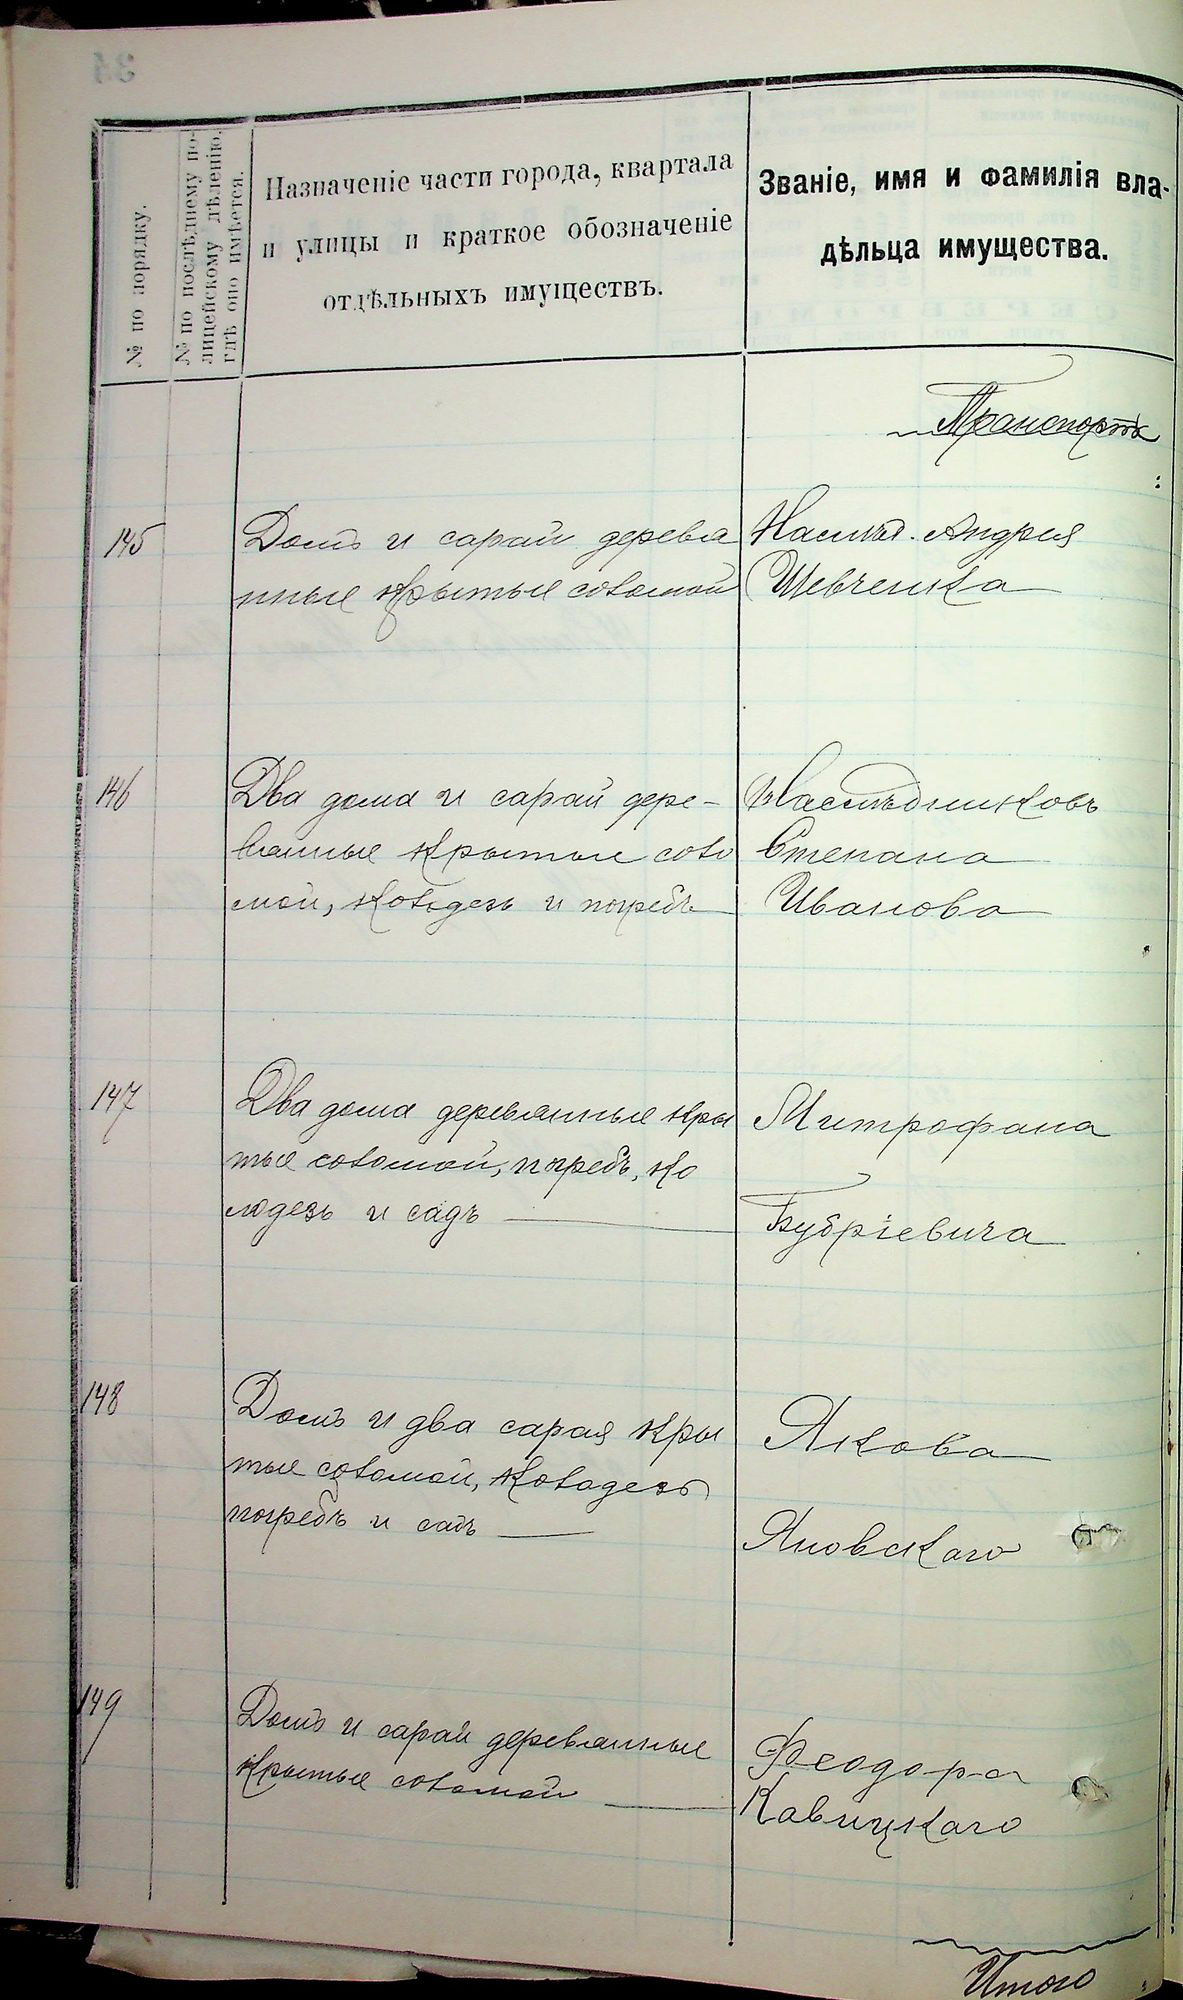 № по порядку.
№ по послѣднему по-
лицейскому дѣленію,
гдѣ оно имѣется.
Назначеніе части города, квартала
и улицы и краткое обозначеніе
отдѣльныхъ имуществъ.
Званіе, имя и фамилія вла-
дѣльца имущества.
Транспортъ
145
Домъ и сарай деревя
нные крытые соломой
Наслѣд. Андрея
Шевченка
146
Два дома и сарай дере-
вянные крытые соло
мой, колодезь и погребъ
Наслѣдниковъ
Степана
Иванова
147
Два дома деревянные кры
тые соломой, погребъ, ко
лодезь и садъ
Митрофана
Бубріевича
148
Домъ и два сарая кры
тые соломой, колодезь
погребъ и садъ
Якова
Яновскаго
149
Домъ и сарай деревянные
крытые соломой
Феодора
Кавицкаго
Итого
34